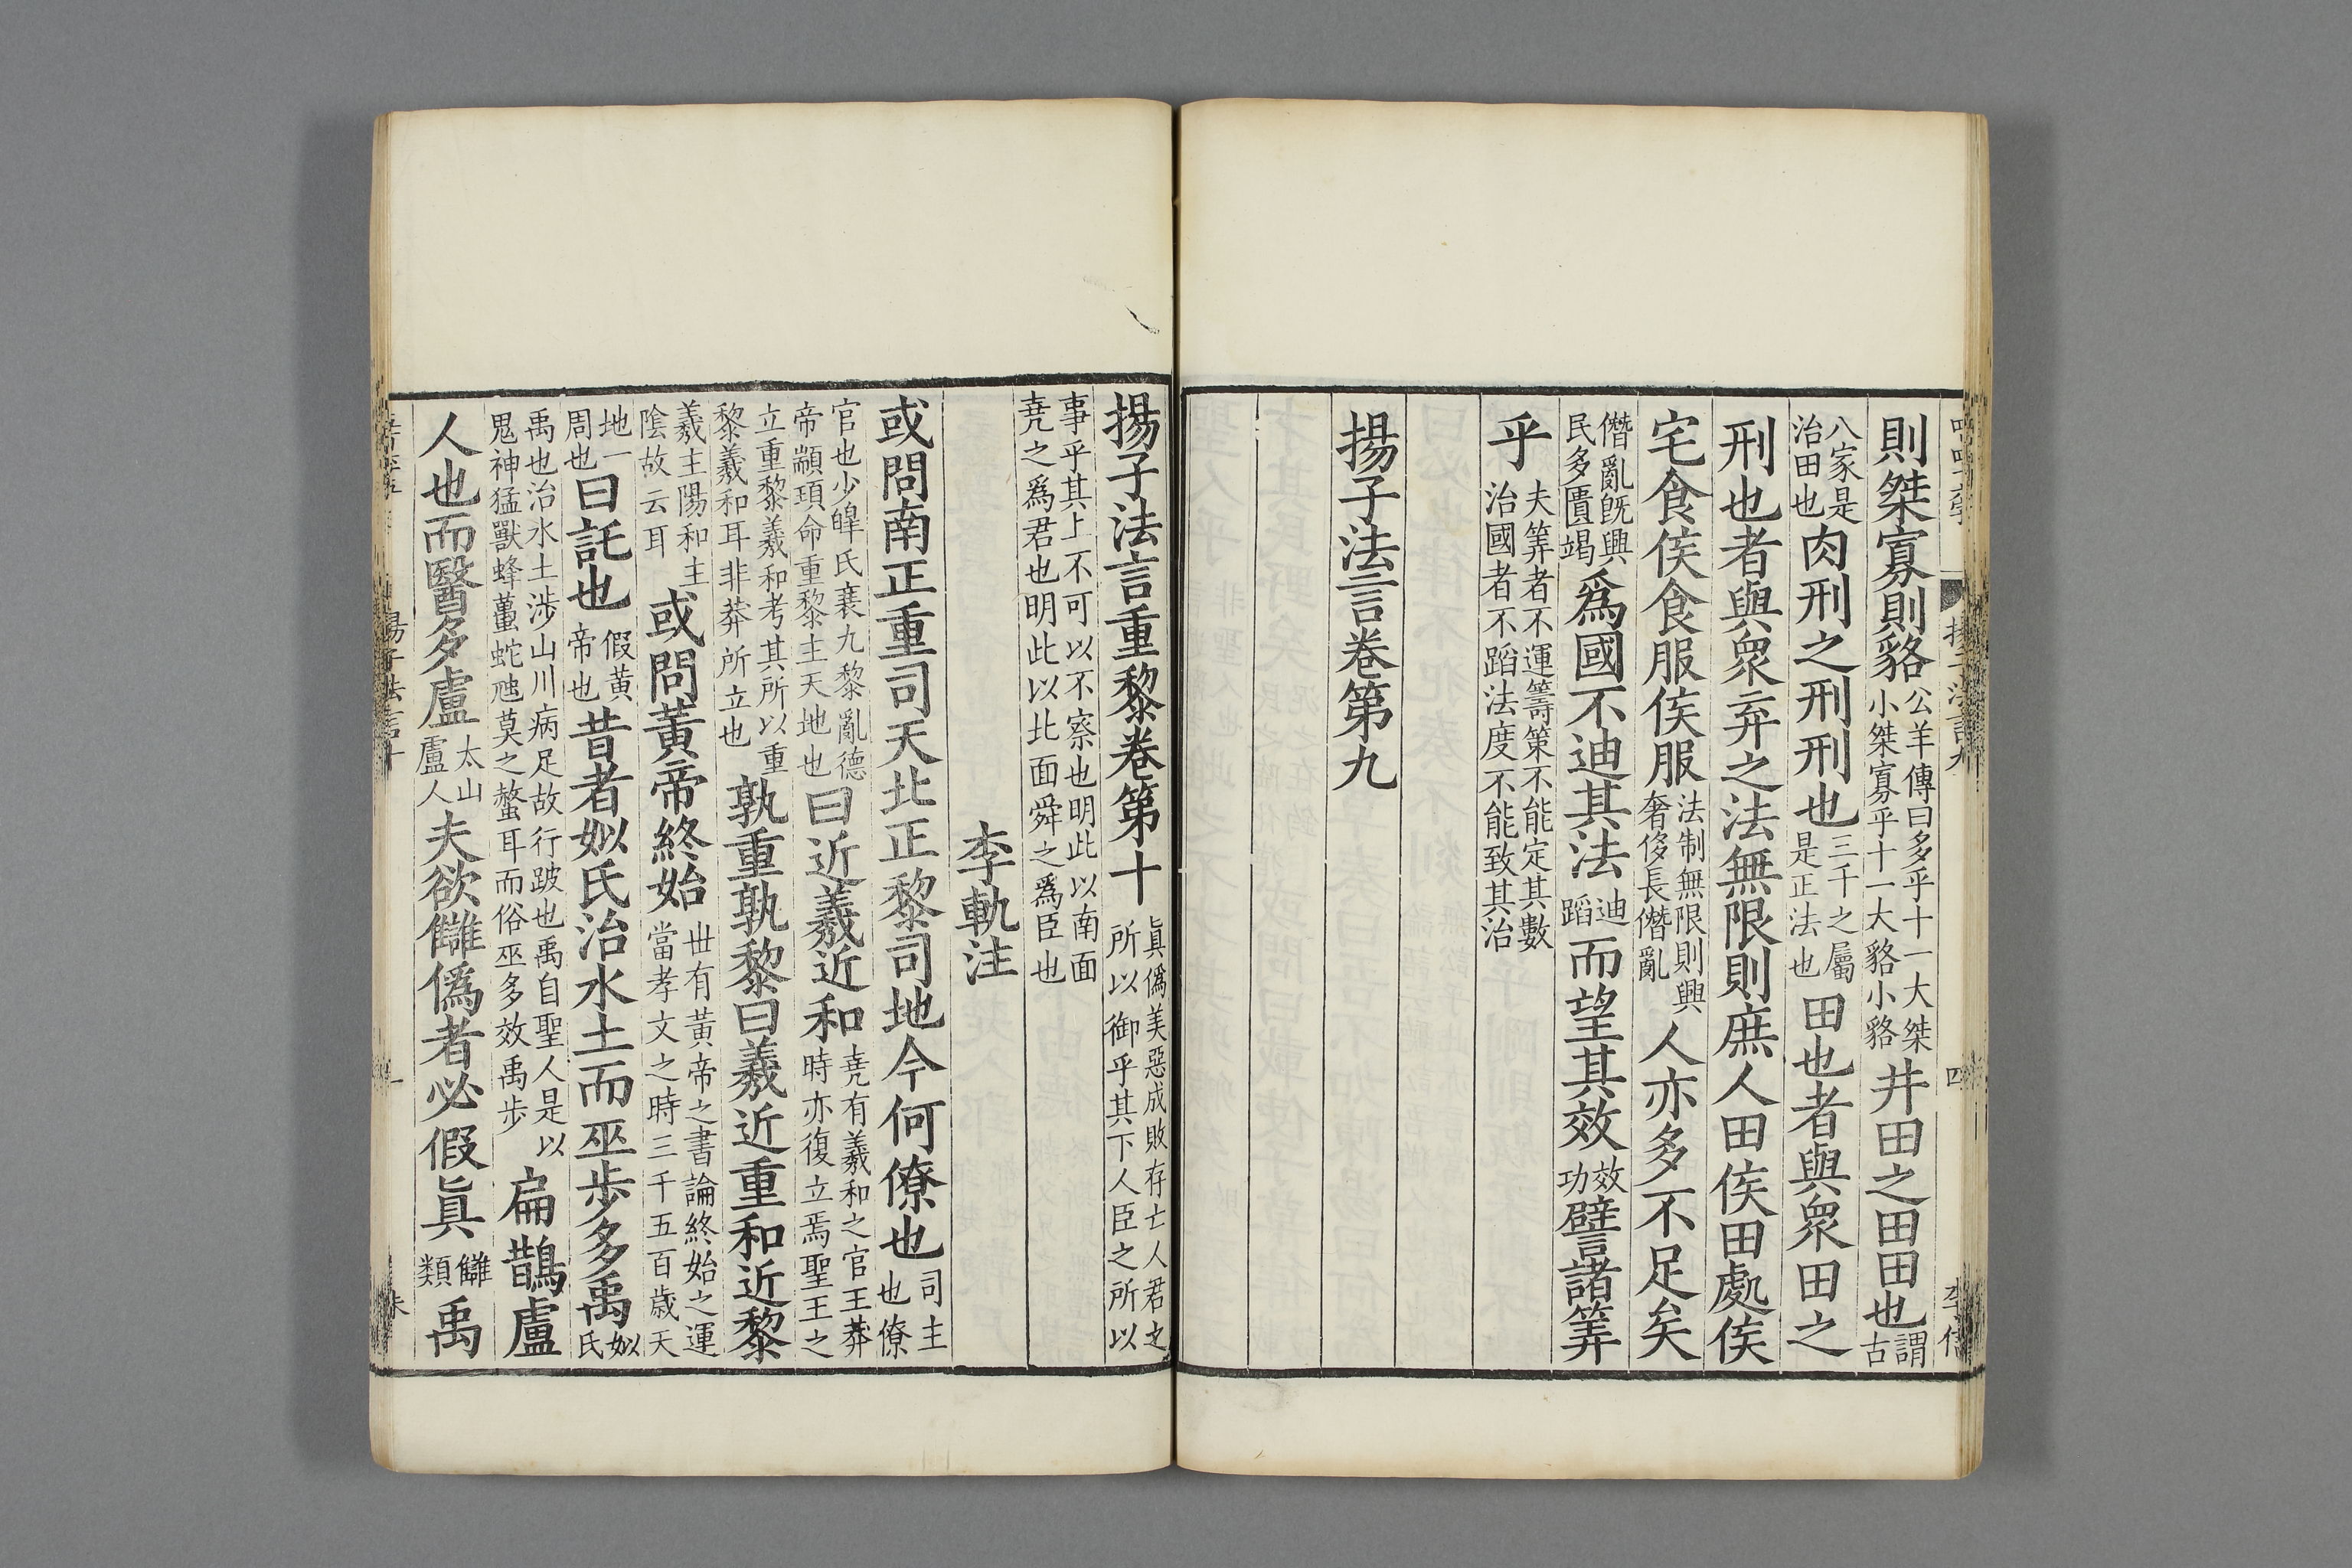 則桀寡則貉公羊傳曰多乎十一大桀小桀寡乎十一大貉小貉井田之田田也謂古
八家是治田也肉刑之刑刑也三千之屬是正法也田也者與衆田之
刑也者與衆弃之法無限則庶人田侯田處侯
宅食侯食服侯服法制無限則興奢侈長僭亂人亦多不足矣
僭亂旣興民多匱竭爲國不迪其法迪蹈而望其效效功譬諸筭
乎夫筭者不運籌策不能定其數治國者不蹈法度不能致其治
揚子法言卷第九
揚子法言九
四
揚子法言重黎卷第十眞僞美惡成敗存亡人君之所以御乎其下人臣之所以
事乎其上不可以不察也明此以南面堯之爲君也明此以北面舜之爲臣也
李軌注
或問南正重司天北正黎司地今何僚也司主也僚
官也少皥氏衰九黎亂德帝顓頊命重黎主天地也曰近羲近和堯有羲和之官王莽時亦復立焉聖王之
立重黎羲和考其所以重黎羲和耳非莽所立也孰重孰黎曰羲近重和近黎
羲主陽和主陰故云耳或問黃帝終始世有黃帝之書論終始之運當孝文之時三千五百歲天
地一周也曰託也假黃帝也昔者姒氏治水土而巫步多禹姒氏
禹也治水土涉山川病足故行跛也禹自聖人是以鬼神猛獸蜂蠆蛇虺莫之螫耳而俗巫多效禹步扁鵲盧
人也而醫多盧太山盧人夫欲讎僞者必假眞讎類禹